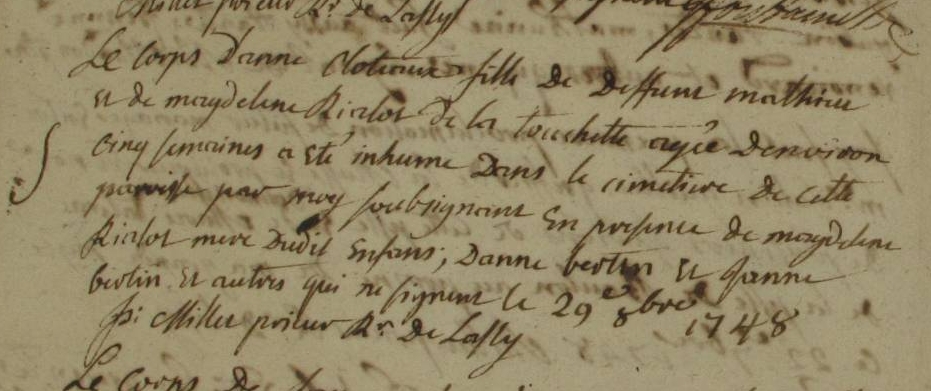 Millet prieur Rr. de Lassy
Le Corps d'anne Cloteaux fille de deffunt mathieu
Et de magdelene Rialot de la touchette agée d'environ
cinq semaines a Eté inhumé dans le cimetiere de cette
paroisse par moy soubsignant En presence de magdelene
Rialot mere dudit Enfant, d'anne bertin Et Janne
bertin Et autres qui ne signent le 29e 8bre 1748
Millet prieur Rr. de Lassy
Le Corps de